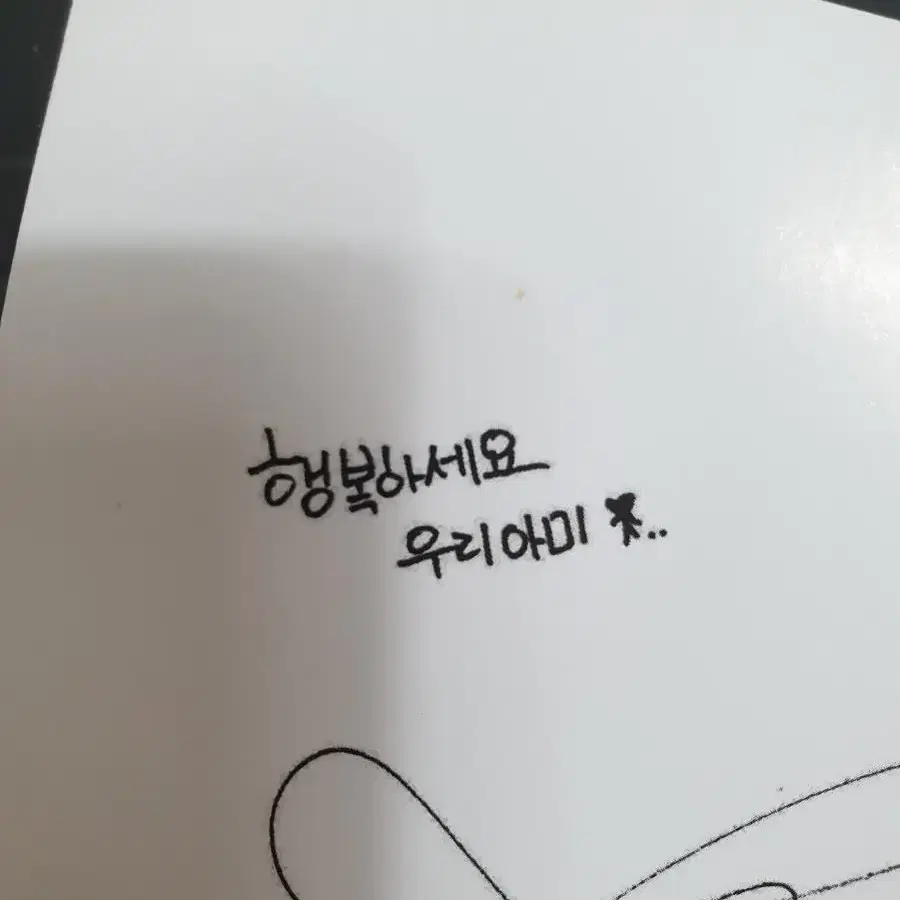 행복하세요
우리아미 ..